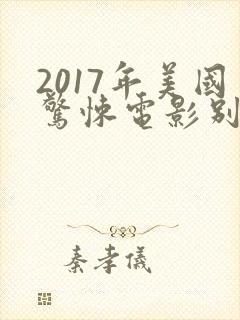 2017年美國
驚悚電影別
秦孝儀